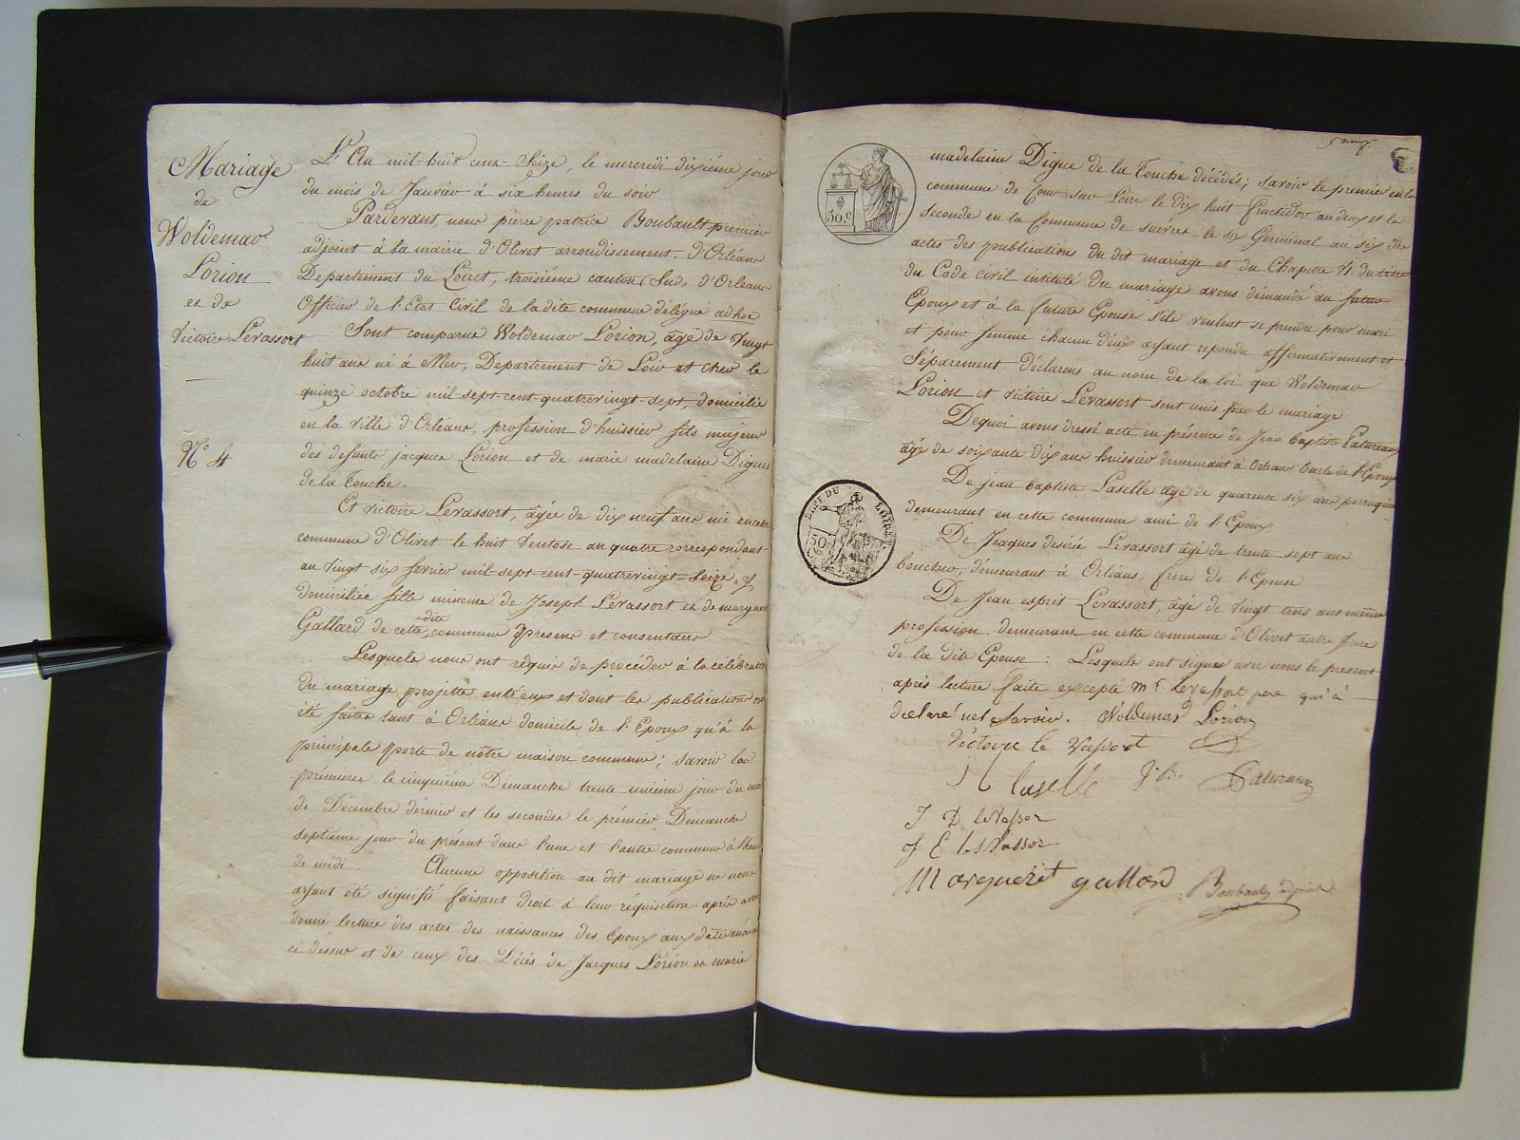 Mariage
de
Woldemar
Lorion
et de
Victoire Levassort
N.º 4
L'An mil-huit cent-Seize, le mercredi dixième jour
du mois de Janvier à six heures du soir
Pardevant, nous pierre patrice Boubault premier
adjoint à la mairie d'Olivet arrondissement d'Orléans
Département du Loiret, troisième canton Sud d'Orléans
Officier de l'Etat Civil de la dite commune délégué ad hoc
Sont comparus Woldemar Lorion, âgé de vingt
huit ans né à Mer, Département de Loir et cher le
quinze octobre mil sept-cent-quatrevingt-sept, domicilié
en la ville d'Orléans, profession d'huissier fils majeur
des defunts jacques Lorion et de marie madelaine Digue
de la Touche.
Et victoire Levassort, âgée de dix neuf ans née en cette
commune d'Olivet le huit Ventose an quatre correspondant
au vingt six fevrier mil-sept-cent-quatrevingt-Seize, y
domiciliée fille mineure de Joseph Levassort et de marguerite
Gallard de cette dite commune présens et consentans
Lesquels nous ont requis de procéder à la célébration
du mariage projetté entr'eux et dont les publications ont
été faites tant à Orléans domicile de l'Epoux qu'à la
principale porte de nôtre maison commune; savoir la
première le cinquième Dimanche trente unième jour du mois
de Décembre dernier et les secondes le prémier Dimanche
septième jour du présent dans l'une et l'autre commune à l'heure
de midi. Aucune opposition au dit mariage ne nous
ayant été signifié faisant droit à leur réquisition après avoir
donné lecture des actes des naissances des Epoux aux dates
ci dessus et de ceux des Décès de Jacques Lorion et marie
50.c
madelaine Digue de la Touche décédés; savoir le premier en la
commune de Cour-sur-Loire le dix huit fructidor an deux et la
seconde en la Commune de suèvres le six Germinal an six des
actes des publications du dit mariage et du Chapitre VI du titre
du Code civil intitulé du mariage avons demandé au futur
Epoux et à la future Epouse s'ils veulent se prendre pour mari
et pour femme chacun d'eux ayant repondu affirmativement et
Séparement déclarons au nom de la loi que Woldemar
Lorion et victoire Levassort sont unis par le mariage
Dequoi avons dressé acte en présence de Jean baptiste Patureau
âgé de soixante dix ans huissier demeurant à Orléans oncle de l'Epoux
De jean baptiste Laselle âgé de quarante six ans perruquier
demeurant en cette commune ami de l'Epoux
De Jacques désiré Levassort âgé de trente-sept ans
boucher, démeurant à Orléans, frère de l'Epouse
De Jean esprit Levassort, âgé de vingt trois ans même
profession demeurant en cette commune d'Olivet autre frère
de la dite Epouse: Lesquels ont signés avec nous le present
après lecture faite excepté mr Levassort père qui a
déclaré ne le Savoir. Woldemar Lorion
victoire le Vassort
laselle
Patureau
J D leVassor
J E leVassor
Marguerit gallard
Boubault adjoint
DEPT DU LOIRET
50